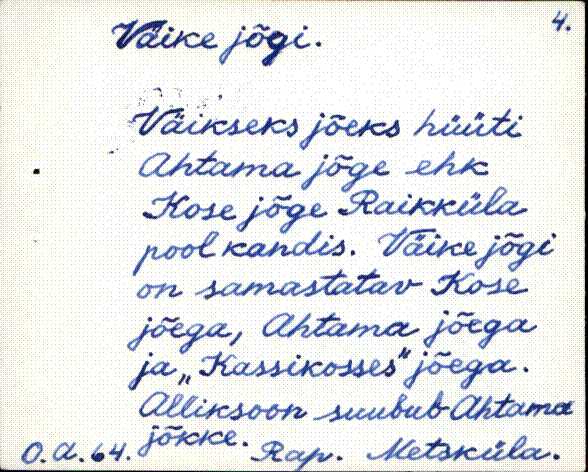 4.
Väike jõgi.
Väikseks jõeks hüüti
Ahtama jõge ehk
Kose jõge Raikküla
pool kandis. Väike jõgi
on samastatav Kose
jõega, Ahtama jõega
ja „Kassikosses" jõega.
Alliksoon suubub Ahtama
jõkke.
O.A.64. Rap. Metsküla.